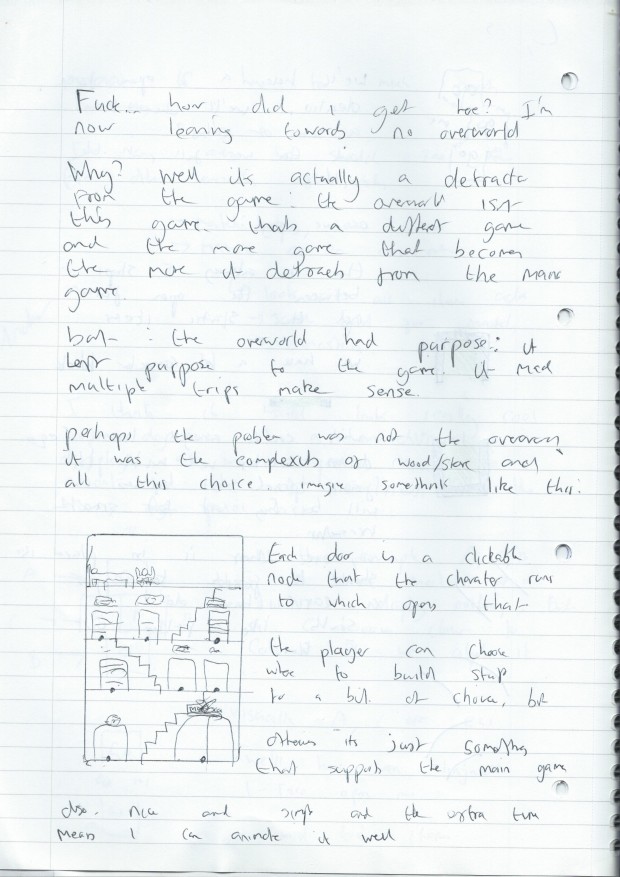 Fuck.. how did i get here? I'm
now leaning towards no overworld
Why? Well its actually a detracts
from the game: the overworld isn't
this game. thats a different game
and the more game that becomes
the more it detracts from the main
game.
but : the overworld had purpose: it
kept purpose to the game. it mad
multiple trips make sense.
perhaps the problem was not the
it was the complexity of wood/stone and
all this choice. imagine somethink like this:
Each door is a clickable
node that the charater runs
to which opens that
the player can choose
where to build stuff
for a bit of choice, but
otherwise its just something
that supports the main game
also. nice and simple and the extra time
means I can animate it well